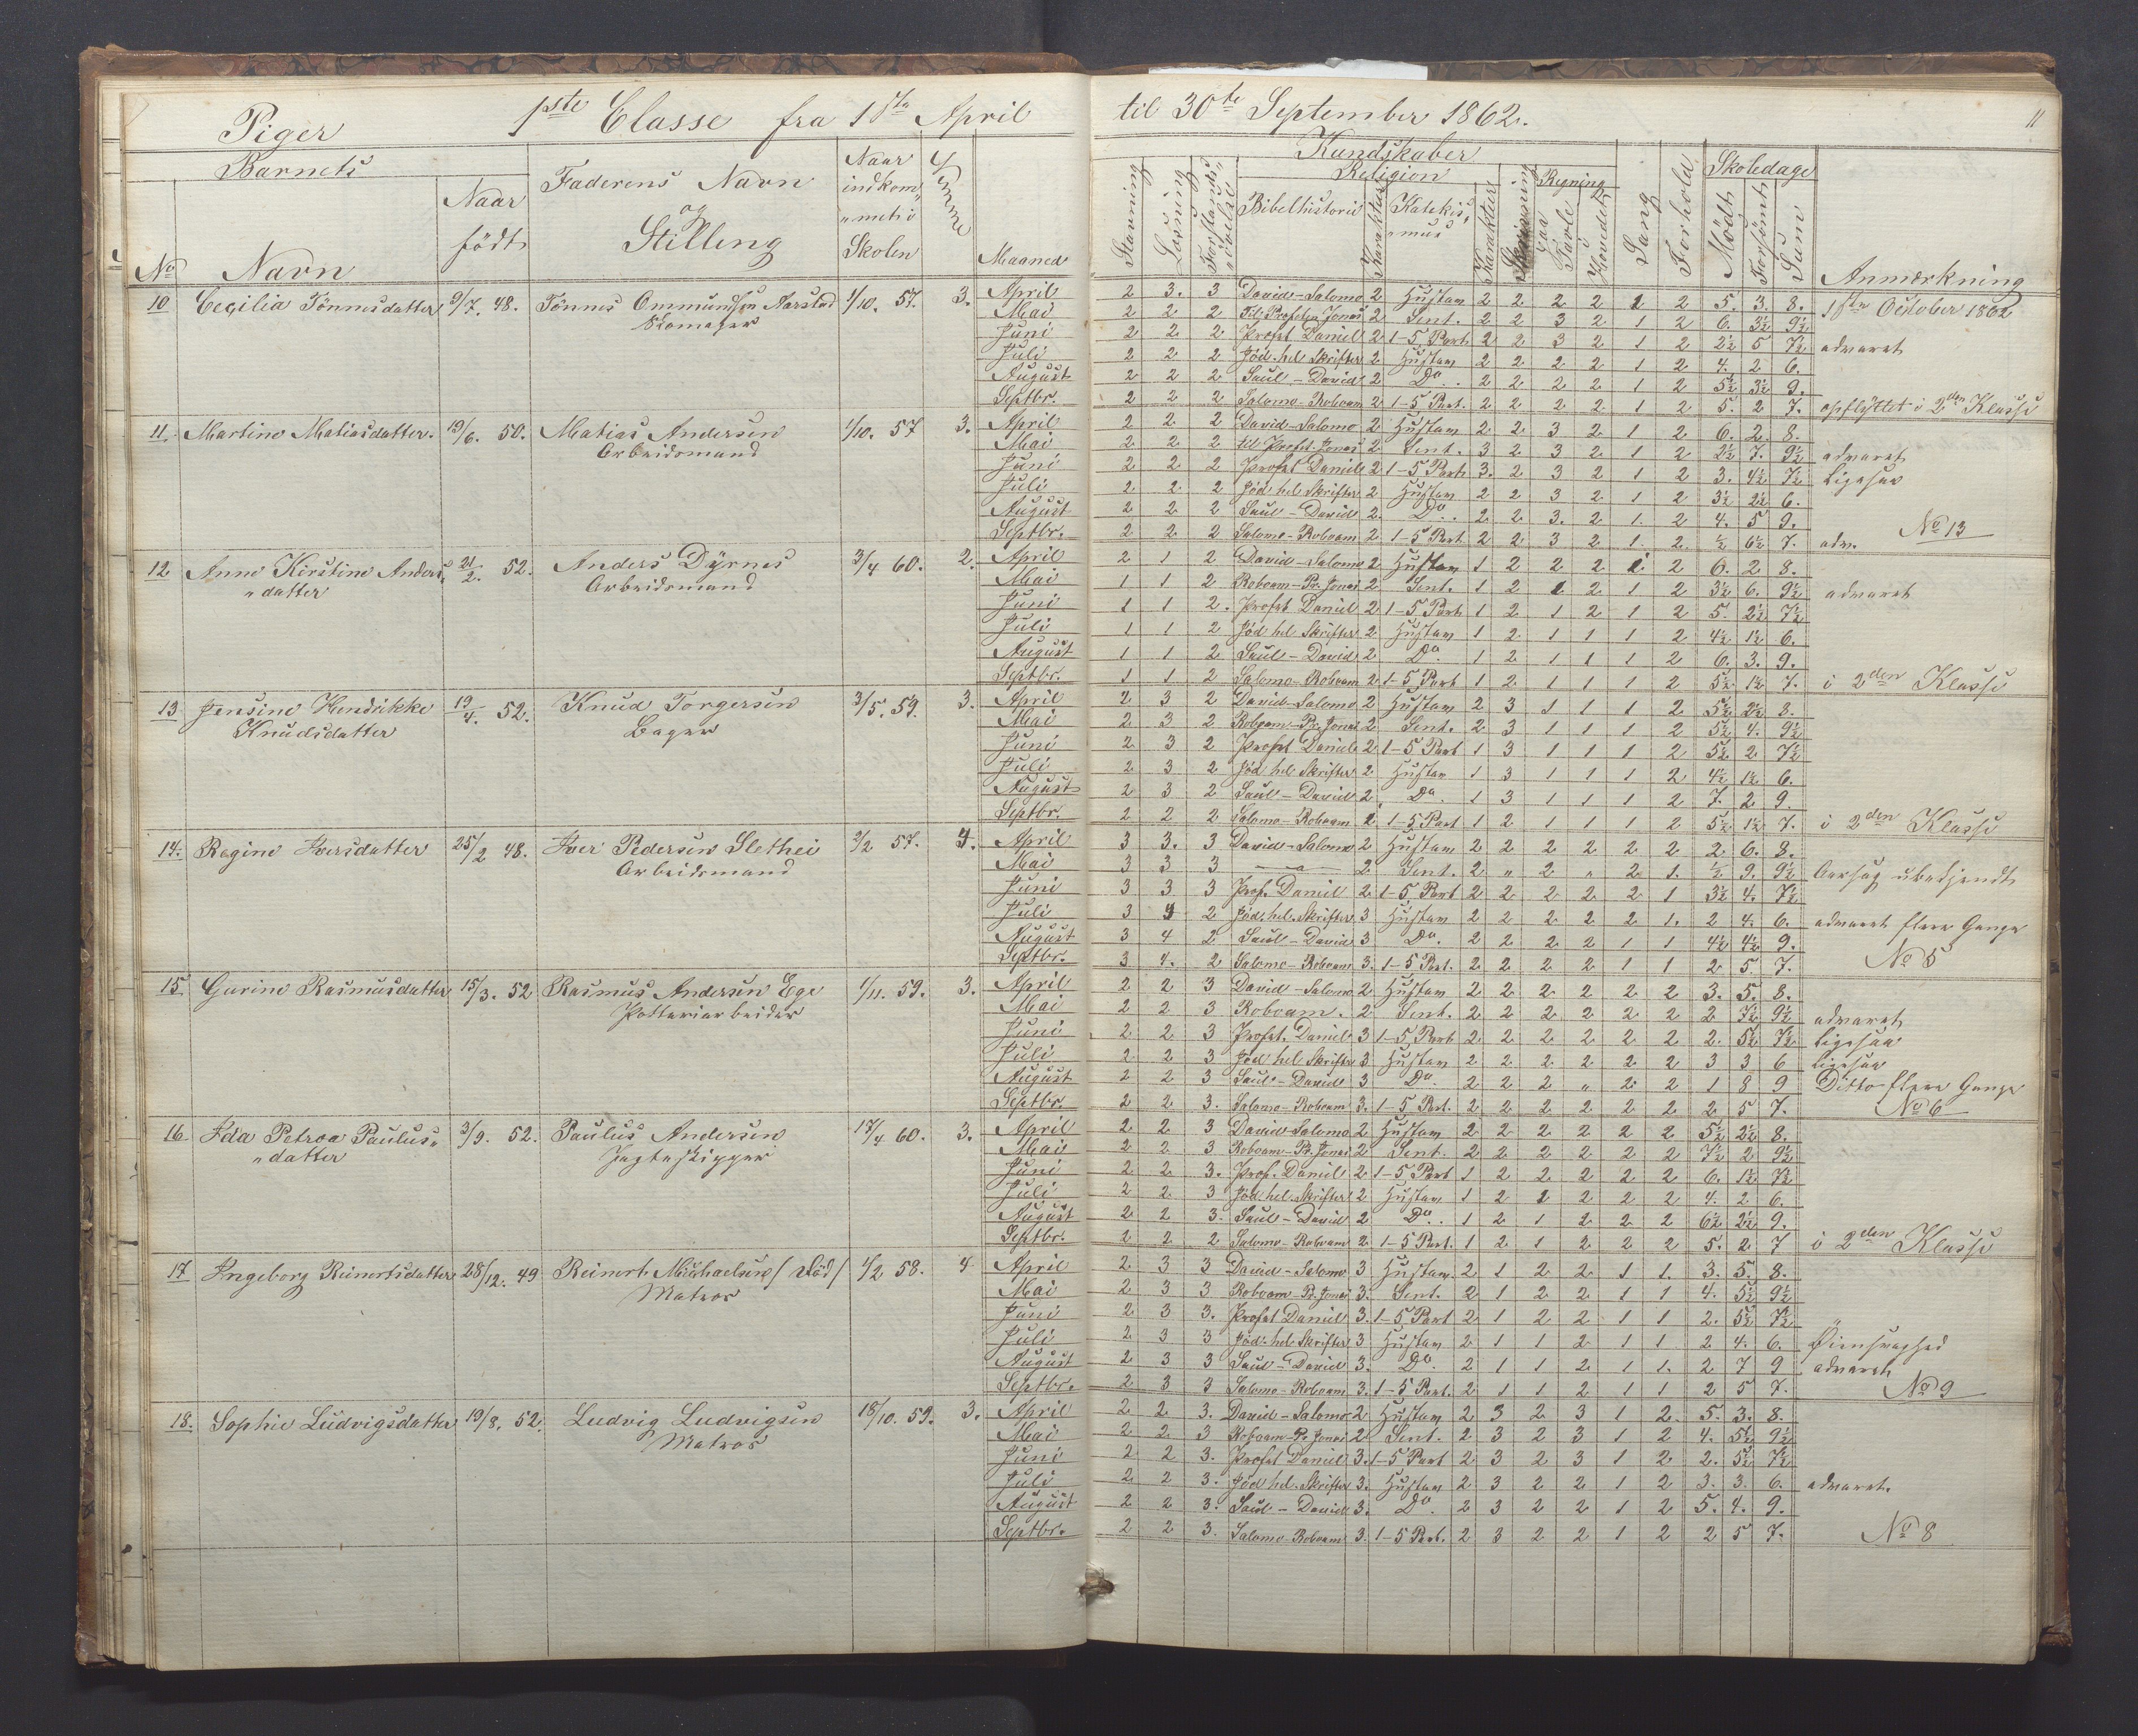 Piger 1ste Classe fra 1ste April til 30te September 1862. 11
Barnets Faderens Navn og Stilling Naar indkommet i Skolen Evnne Maaned Kundskaber Skoledage Anmærkning
No Navn Naar født Stavning Læsning Forstands øvelse Religion Bibelhistorie Karakter Katekismus Karakter Skrivning Regning paa Tavle i Hovedet Sang Forhold Mødt Forsømt Sum
10 Cecilia Tönnesdatter 9/7. 48. Tönnes Ommundsen Aarstad 1/10. 57. 3. April 2 3. 3 David-Salomo 2 Hustav 2 2 2 2 1 2 5. 3. 8. 1ste October 1862
Skomager Mai 2 2 2 Til Profeten Jonas 2 Sent. 2 2 3 2 1 2 6. 3½ 9½
Juni 2 2 2 Profet Daniel 2 1-5 Part 2 2 3 2 1 2 2½ 5 7½ advaret
Juli 2 2 2 Jød. hel Skrifter 2 Hustav 2 2 2 2 1 2 4. 2 6.
August 2 2 2 Saul-David 2 Do. 2 2 2 2 1 2 5½ 3½ 9.
Septbr. 2 2 2 Salomo-Roboam 2 1-5 Part. 2 2 2 2 1 2 5. 2 7. opflyttet i 2den Klasse
11. Martine Matiasdatter. 19/6. 50. Matias Andersen 1/10. 57 3. April 2 2 2 David-Salomo 2 Hustav 2 2 3 2 1 2 6. 2. 8.
Arbeidsmand Mai 2 2 2 til Profet Jonas 2 Sent. 3 2 3 2 1 2 2½ 7. 9½ advaret
Juni 2 2 2 Profet Daniel 2 1-5 Part 3. 2 3 2 1 2 3. 4½ 7½ Ligesaa
Juli 2 2 2 Jød hel Skrifter 2 Hustav 2 2 3 2 1 2 3½ 2½ 6.
August 2 2 2 Saul-David 2. Do. 2 2 3. 2 1. 2 4. 5 9.
Septbr. 2 2 2 Salomo-Roboam 2 1-5 Part 2 2 3 2 1. 2. ½ 6½ 7. adv. No 13
12 Anne Kirstine Anders- 21/2. 52. Anders Dyrnes 3/4 60. 2. April 2 1 2 David-Salomo 2 Hustav 1 2 2 2 1 2 6. 2 8.
datter Arbeidsmand Mai 1 1 2 Roboam-Pr. Jonas 2 Sent. 1 2 1 2 1 2 3½ 6. 9½ advaret
Juni 1 1 2. Profet Daniel 2 1-5 Part 1 2 1 2 1 2 5. 2½ 7½
Juli 1 1 2 Jød hel Skrifter 2 Hustav 1 2 1 1 1 2 4½ 1½ 6.
August 1 1 2 Saul-David 2 Do. 1 2 1 1 1 2 6. 3. 9.
Septbr. 1 1 2 Salomo-Roboam 2 1-5 Part 1 2 1 1 1 2 5½ 1½ 7. i 2den Klasse
13 Jensine Hendrikke 19/4. 52. Knud Torgersen 3/5. 59. 3. April 2 3 2 David-Salomo 2 Hustav 2 3 1 1 1 2 5½ 2½ 8.
Knudsdatter Bager Mai 2 3 2 Roboam-Pr. Jonas 2 Sent. 2 3 1 1 1 2 5½ 4. 9½
Juni 2 3 2 Profet Daniel 2 1-5 Part 1 3 1 1 1 2 5½ 2 7½
Juli 2 3 2 Jød hel Skrifter 2 Hustav 1 3 1 1 1 2 4½ 1½ 6.
August 2 3 2 Saul-David 2 Do. 1 3 1 1 1 2 7. 2 9.
Septbr. 2 2 2 Salomo-Roboam 2 1-5 Part 1 2 1 1 1 2 5½ 1½ 7. i 2den Klasse
14. Regine Iversdatter 25/2 48. Iver Pedersen Slethei 2/2 57. 4. April 3 3. 3 David-Salomo 2 Hustav 2 2 2 2 2 2 2 6. 8.
Arbeidsmand Mai 3 3 3 2 Sent. 2 " 2 " 2 1. ½ 9. 9½ Aarsag ubekjendt
Juni 3 3 3 Prof. Daniel 2 1-5 Part 2 2 2 2 2 1 3½ 4. 7½
Juli 3 4 2 Jød. hel. Skrifter 3 Hustav 2 2 2 2 2 1. 2 4. 6. advaret flere Gange
August 3 4 2 Saul-David 3 Do. 2 2 2 2 1 1 4½ 4½ 9.
Septbr. 3 4. 2 Salomo-Roboam 3. 1-5 Part. 2 2 2 2 1 1 2 5. 7. No 5
15 Gurine Rasmusdatter 15/3. 52 Rasmus Andersen Ege 1/11. 59. 3. April 2 2 3 David-Salomo 2 Hustav 2 2 2 2 2 2 3. 5. 8.
Potteriarbeider Mai 2 2 3 Roboam. 2 Sent. 2 2 2 2 2 2 2 7½ 9½ advaret
Juni 2 2 3 Profet. Daniel 3 1-5 Part 2 2 2 2 2 2 2. 5½ 7½ Ligesaa
Juli 2 2 3 Jød hel Skrifter 3 Hustav 2 2 2 2 2 2 3 3 6 Ligesaa
August 2 2 3 Saul-David 3 Do. 2 2 2 " 2 2 1 8 9 Ditto flere Gange
Septbr. 2 2 3. Salomo-Roboam 3. 1-5 Part. 2 2 2 2 2 2 2 5 7. No 6
16 Ida Petrea Paulus- 3/9. 52. Paulus Andersen 17/4 60. 3. April 2 2 3 David-Salomo 2 Hustav 2 2 2 2 2 2 5½ 2½ 8.
datter Jagteskipper Mai 2 2 3 Roboam-Pr. Jonas 2 Sent. 2 2 2 2 2 2 7½ 2 9½
Juni 2 2 3. Prof. Daniel 2 1-5 Part 1 2 2 2 2 2 6. 1½ 7½
Juli 2 2 3 Jød hel. Skrifter 2 Hustav 1 2 1 2 2 2 4. 2 6.
August 2 2 3. Saul-David 2 Do. 1 2 1 2 2 2 6½ 2½ 9.
Septbr. 2 2 2 Salomo-Roboam 2 1-5 Part. 1 2 1 2 2 2 5. 2 7 i 2den Klasse
17 Ingeborg Reinertsdatter 28/12. 49 Reinert Michaelsen / død / 4/2 58. 4 April 2 3 3 David-Salomo 3 Hustav. 2 1 2 2 1 1. 3. 5. 8.
Matros Mai 2 3 3 Roboam-Pr. Jonas 3. Sent. 2 1 2 2 1 1 4. 5½ 9½
Juni 2 3 3. Profet Daniel 3. 1-5 Part 2 1 2 2 1 1 2. 5½ 7½
Juli 2 3 3 Jød. hel Skrifter 3 Hustav 2 1 1 2 1 1 2 4. 6. Øiensvaghed
August 2 3 3 Saul-David 3. Do. 2 1 1 2 1 1. 2 7 9 advaret.
Septbr. 2 3 3 Salomo-Roboam 3. 1-5 Part. 2 1 1 2 1 1 2 5 7. No 9
18. Sophie Ludvigsdatter 19/8. 52. Ludvig Ludvigsen 18/10. 59. 3. April 2 2 3. David-Salomo 2 Hustav 2 3 2 3 1 2. 5. 3. 8.
Matros Mai 2 2 3 Roboam-Pr Jonas 2 Sent. 2 3 2 3 1 2 4. 5½ 9½
Juni 2 2 3. Profet Daniel 3. 1-5 Part 2 3 2 3 1 2 2. 5½ 7½
Juli 2 2 3. Jød hel. Skrifter 3. Hustav 2 3 2 2 1 2 3. 3. 6. advaret.
August 2 2 3. Saul-David 3. Do. 2 3 2 2 1 2 5. 4. 9.
Septbr. 2 2 3. Salomo-Roboam 3. 1-5 Part. 2 3 2 2 1 2 2 5 7. No 8